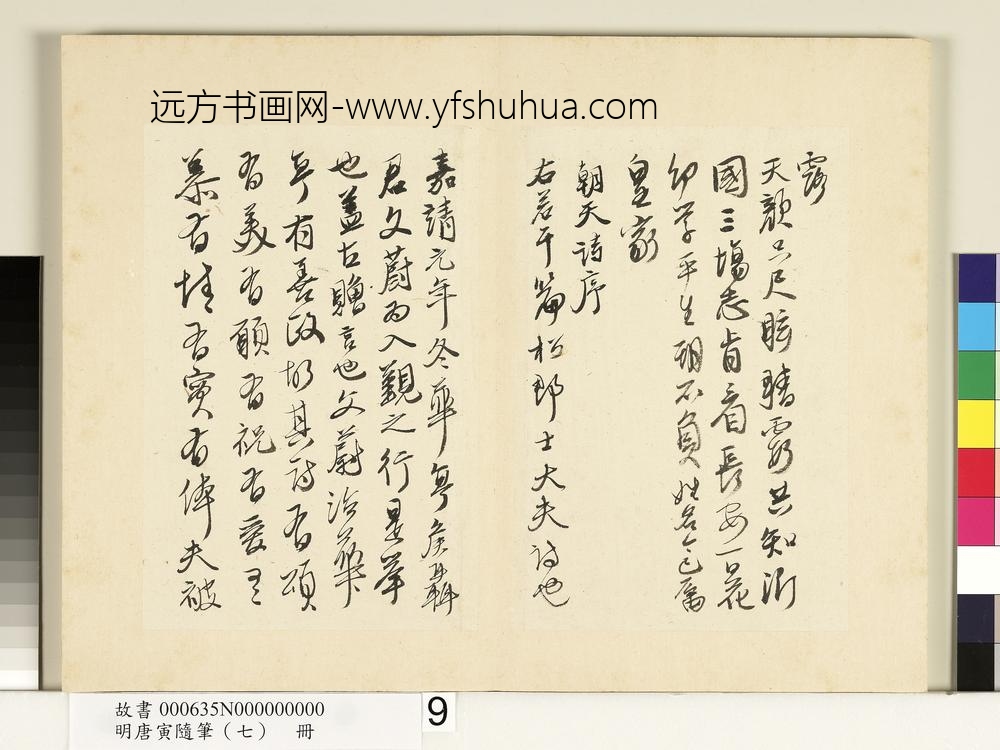 远方书画网-www.yfshuhua.com
霞
天顏只尺眩賭雲共知浙
國三場志肯看長安一花
卯學平生期不負姓名已屬
皇家
朝天詩序
右若干篇松郡士大夫詩也
嘉靖元年冬華亭侯聶
君文蔚為入覲之行是举
也蓋古贈言也文蔚治華
亭有善政故其詩有頌
有美有願有祝有愛有
慕有情有實有倬夫被
故書 000635N000000000
明唐寅隨筆（七） 冊
9